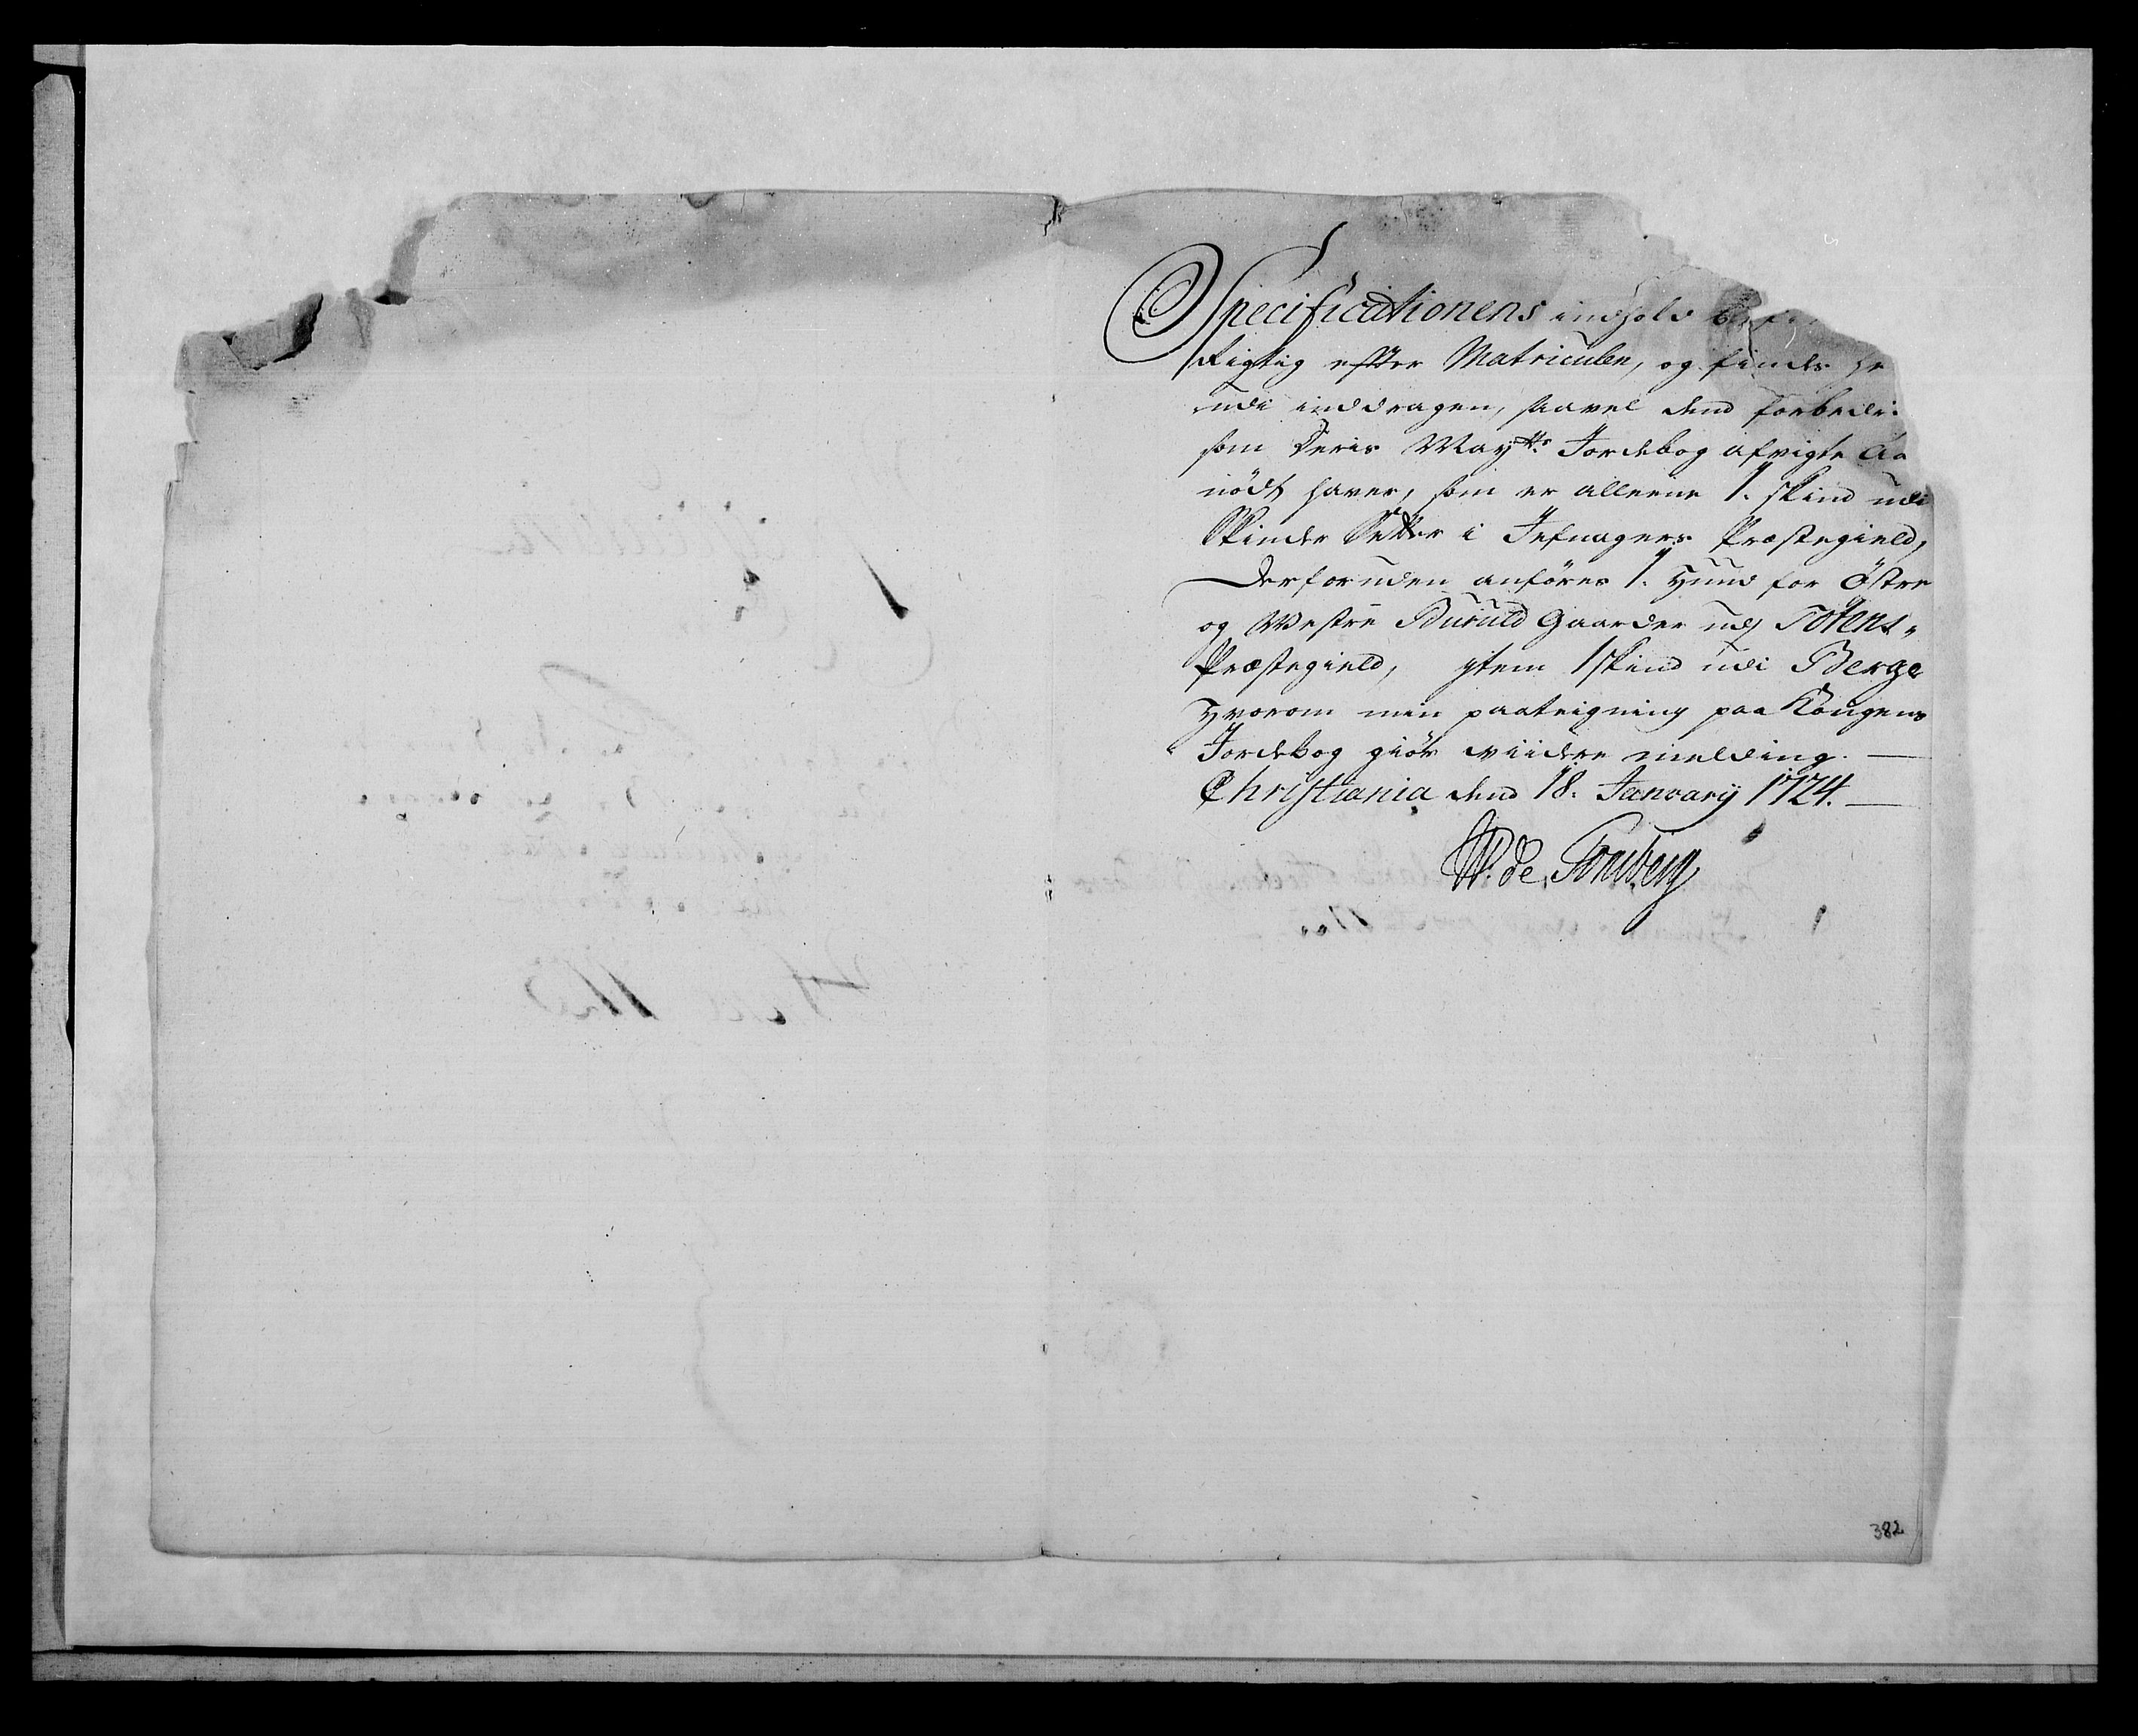 Specificationens indhold
Rigtig efter Matriculen, og findes he
udi inddragen, saavel dend forbedr:
som Deris Maytts. Jordebog afvigte Aa
nödt haver, som er alleene 1. skind udi
Skinder Setter i Jefnagers Præstegield,
Derforuden anföres 1. Hund for Östre
og Westre Buruld Gaarder udj Totens
Præstegield, jtem 1 skind udi Berge
Hvorom min paateigning paa Kongens
Jordebog giör viidere melding. —
Christiania dend 18. January 1724. —
W. de Tonsberg
382